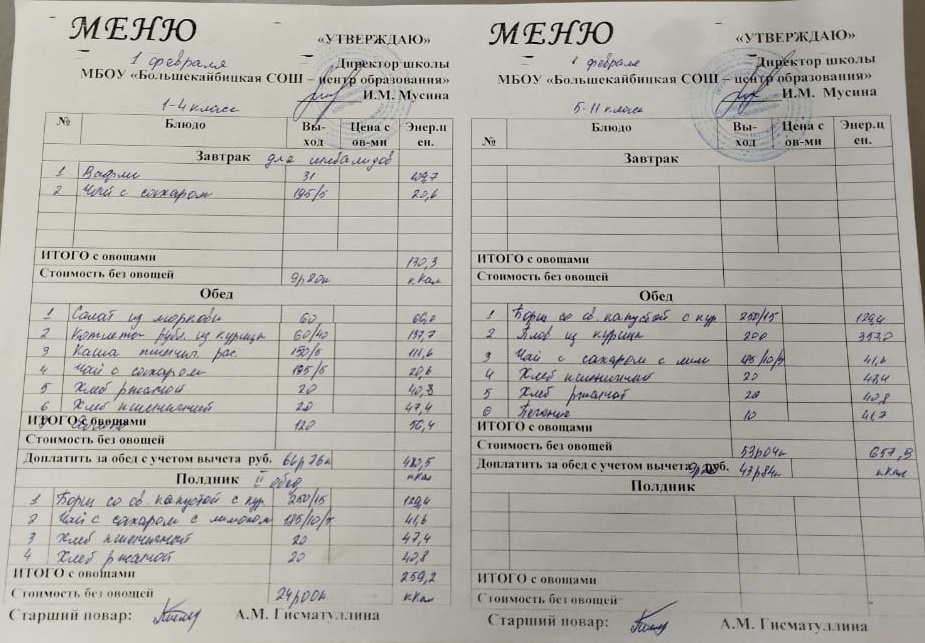 МЕНЮ
«УТВЕРЖДАЮ»
1 февраля
Директор школы
МБОУ «Большекайбицкая СОШ – центр образования»
И.М. Мусина
1-4 класс
№ Блюдо Вы-ход Цена с ов-ми Энер.ц ен.
Завтрак для инвалидов
1 Вафли 31 109,7
2 Чай с сахаром 195/5 20,6
ИТОГО с овощами 130,3
Стоимость без овощей 9р20к кКал
Обед
1 Салат из моркови 60
2 Котлета рубл. из курицы 60/40 137,7
3 Каша пшенич. рас. 150/5 111,6
4 Чай с сахаром 195/5 20,6
5 Хлеб ржаной 20 40,8
6 Хлеб пшеничный 20 47,4
ИТОГО с овощами 120 56,4
Стоимость без овощей
Доплатить за обед с учетом вычета руб. 480,5
Полдник II обед кКал
1 Борщ со св. капустой с кур 250/15 129,4
2 Чай с сахаром с лимоном 185/10/5 41,6
3 Хлеб пшеничный 20 47,4
4 Хлеб ржаной 20 40,8
ИТОГО с овощами 259,2
Стоимость без овощей 24р00к кКал
Старший повар: А.М. Гисматуллина
МЕНЮ
«УТВЕРЖДАЮ»
1 февраля
Директор школы
МБОУ «Большекайбицкая СОШ – центр образования»
И.М. Мусина
5-11 класс
№ Блюдо Вы-ход Цена с ов-ми Энер.ц ен.
Завтрак
ИТОГО с овощами
Стоимость без овощей
Обед
1 Борщ со св. капустой с кур 250/15 129,4
2 Плов из курицы 200 353,0
3 Чай с сахаром с лим 185/10/5 41,6
4 Хлеб пшеничный 20 47,4
5 Хлеб ржаной 20 40,8
6 Печенье 10 41,7
ИТОГО с овощами
Стоимость без овощей 53р04к 657,9
Доплатить за обед с учетом вычета руб. 43р84к кКал
Полдник
ИТОГО с овощами
Стоимость без овощей
Старший повар: А.М. Гисматуллина